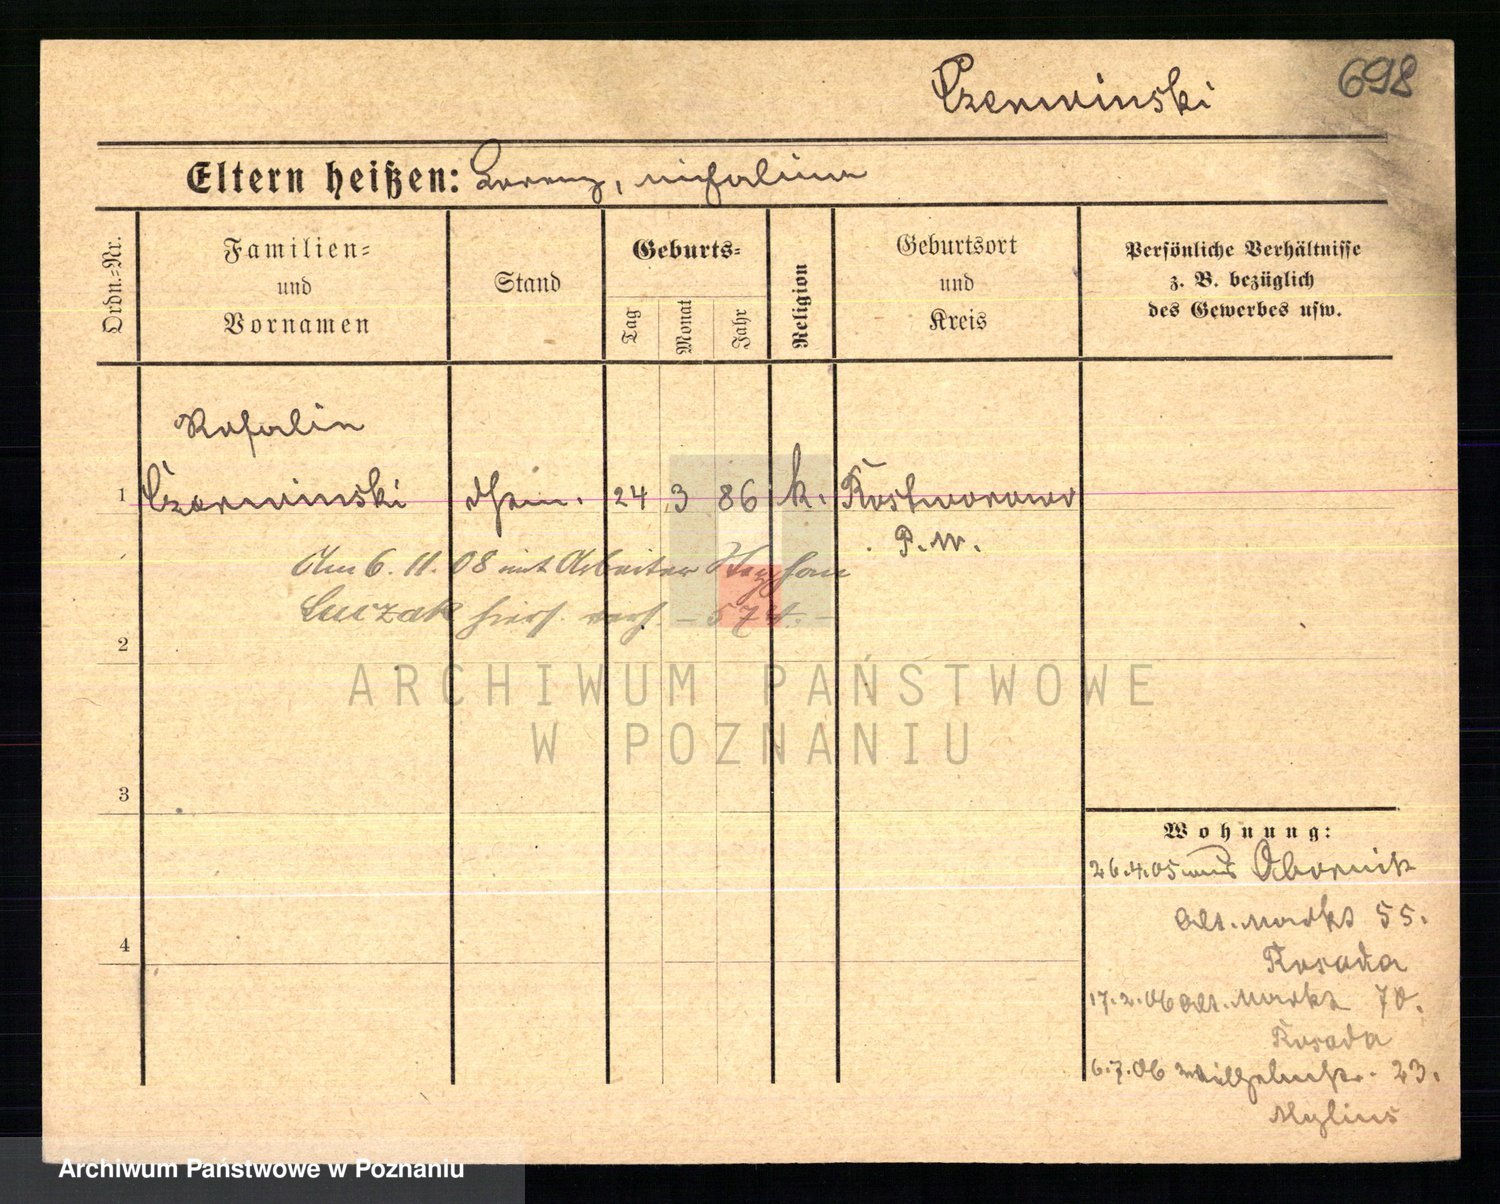 698
Czerwinski
Eltern heißen: Lorenz, Michalina
Ordn.-Nr.
Familien-
und
Vornamen
Stand
Geburts-
Tag
Monat
Jahr
Religion
Geburtsort
und
Kreis
Persönliche Verhältnisse
z. B. bezüglich
des Gewerbes usw.
Rosalie
1 Czerwinski 24 3 86 k. Rostworowo
P.W.
Am 6. 11. 08 mit Arbeiter Stephan
Luczak hier verh. – 574. –
2
3
4
ARCHIWUM PAŃSTWOWE
W POZNANIU
Wohnung:
26.4.05 aus Obornik
Alt. Markt 55.
Kosada
17.2.06 Alt. Markt 70.
Kosada
6.7.06 Wilhelmstr. 23.
Mylius
Archiwum Państwowe w Poznaniu